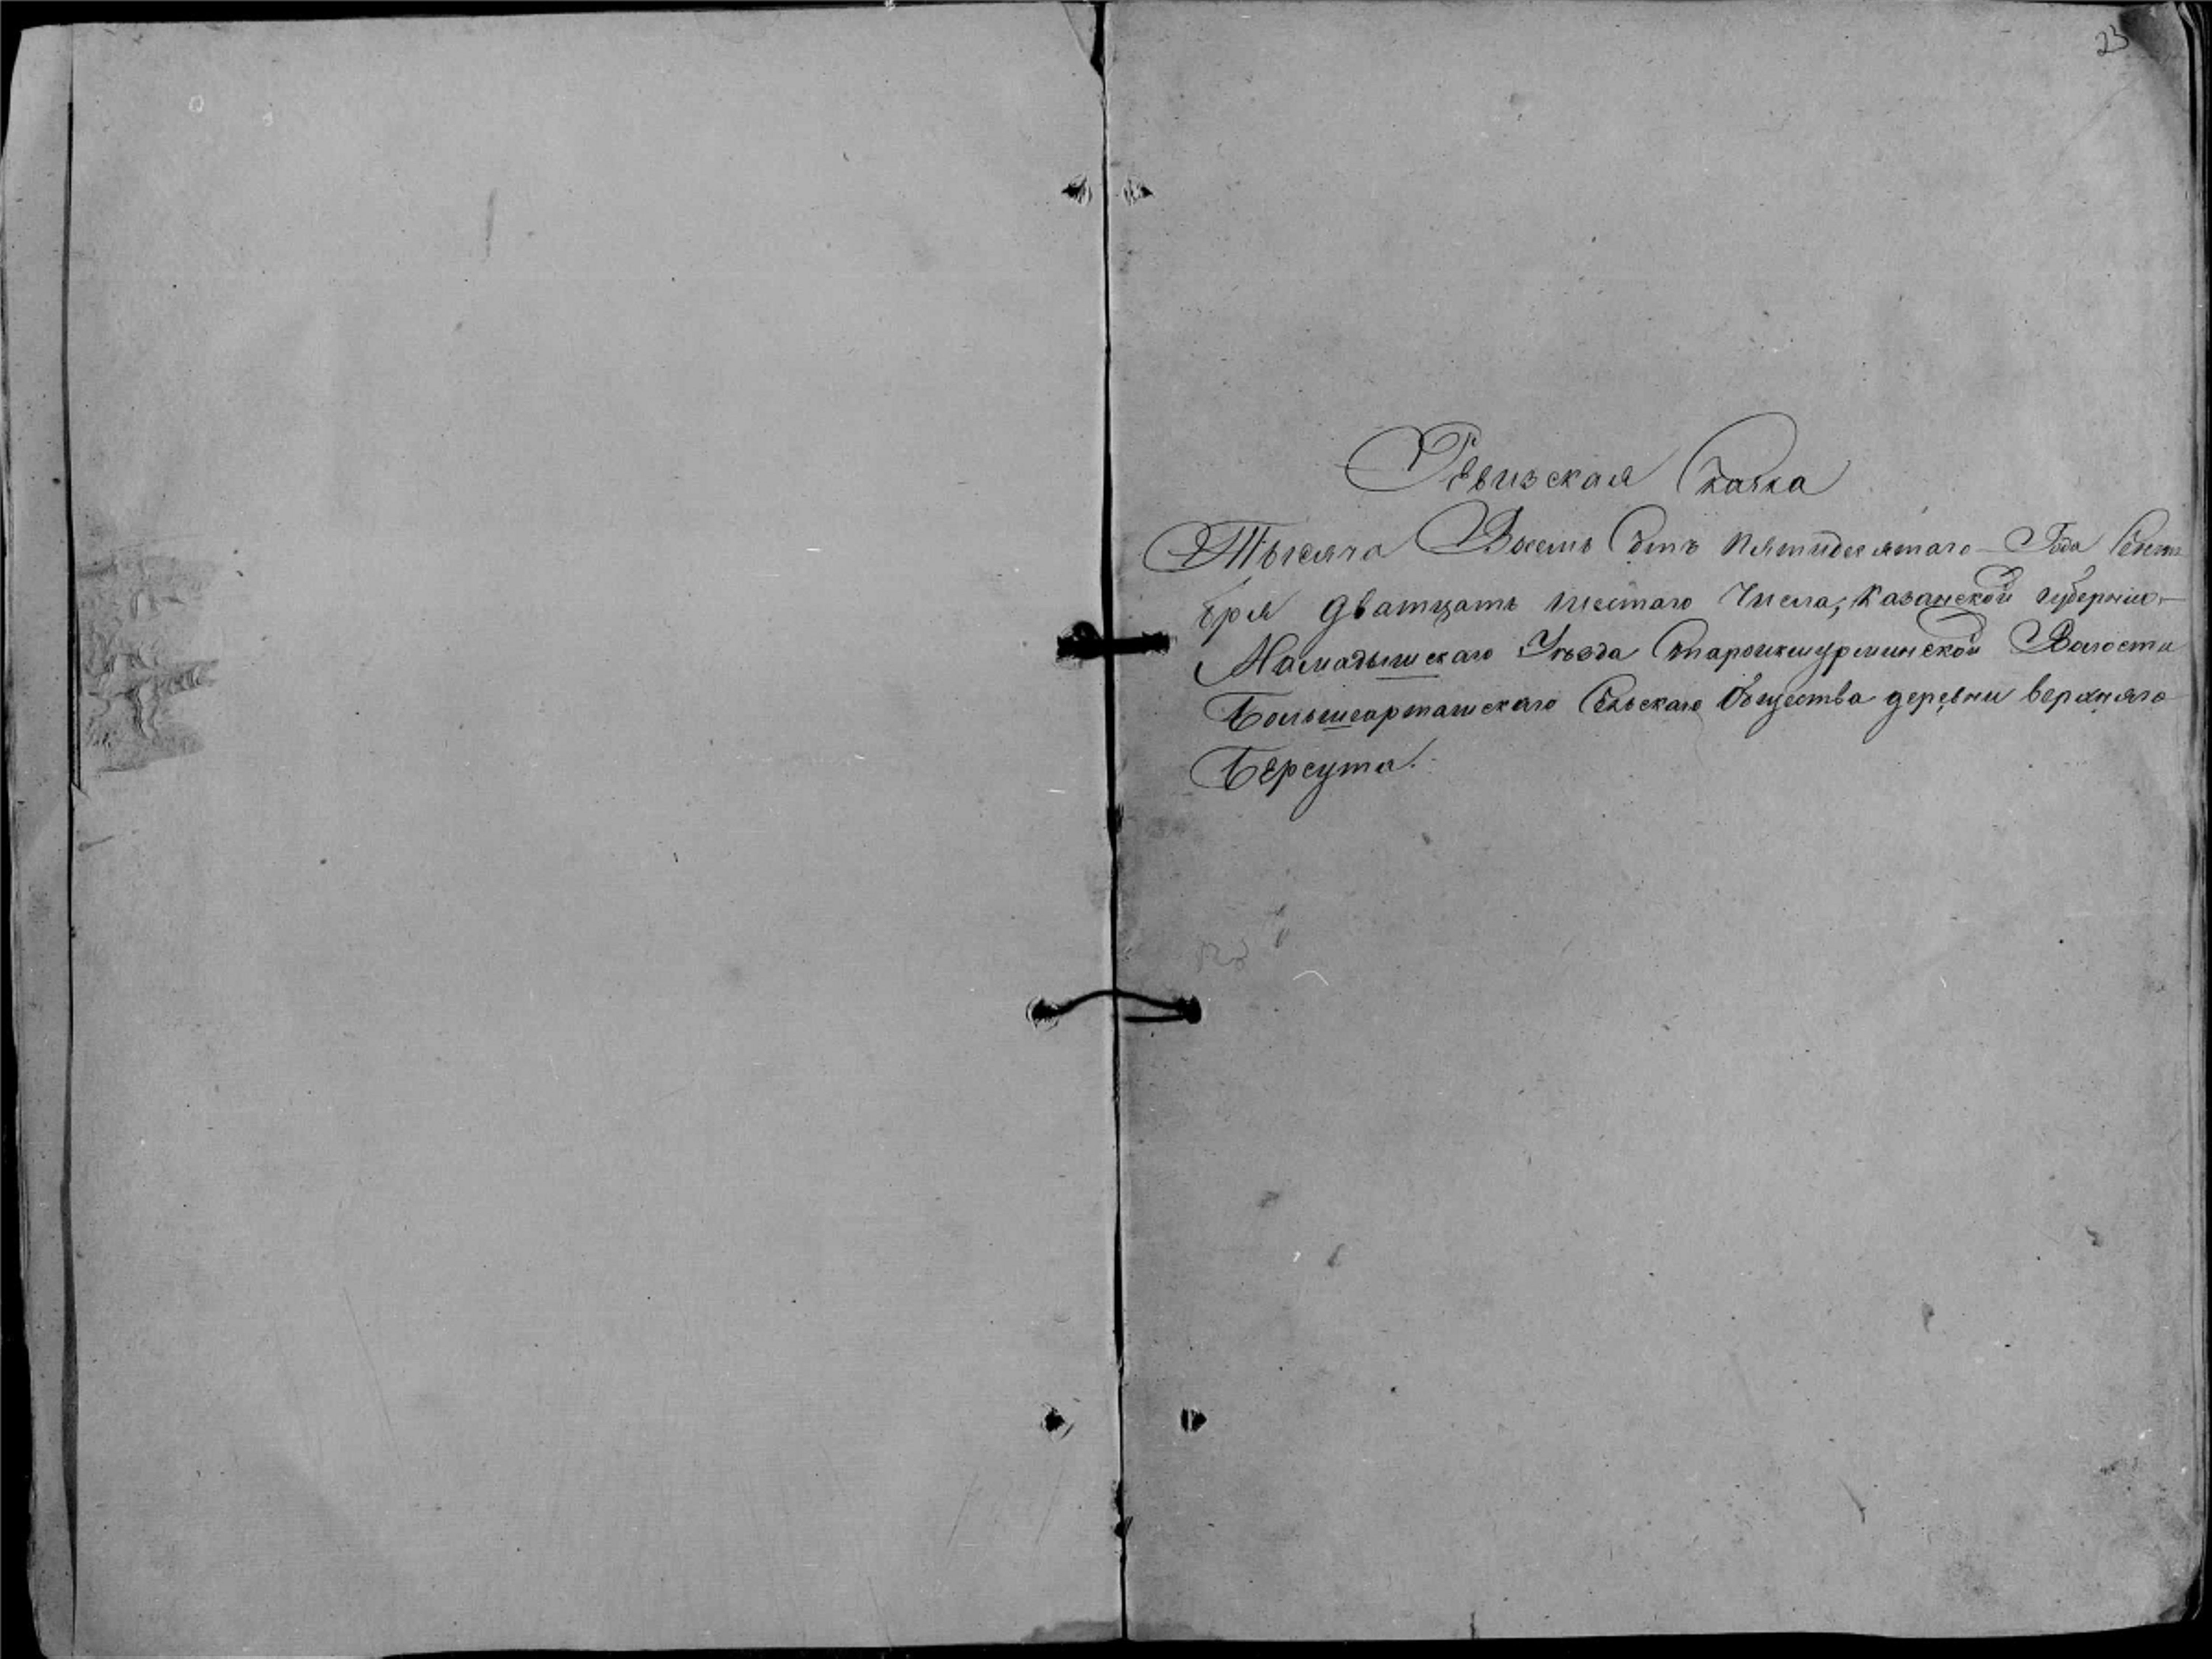 23
Ревизская Сказка
Тысяча Восемь Сотъ пятидесятаго Года Сентя
бря дватцать шестаго Числа, Казанской губернии
Мамадышскаго Уѣзда Староикшурминской Волости
Большеарташскаго Сельскаго Общества деревни верхняго
Берсута.